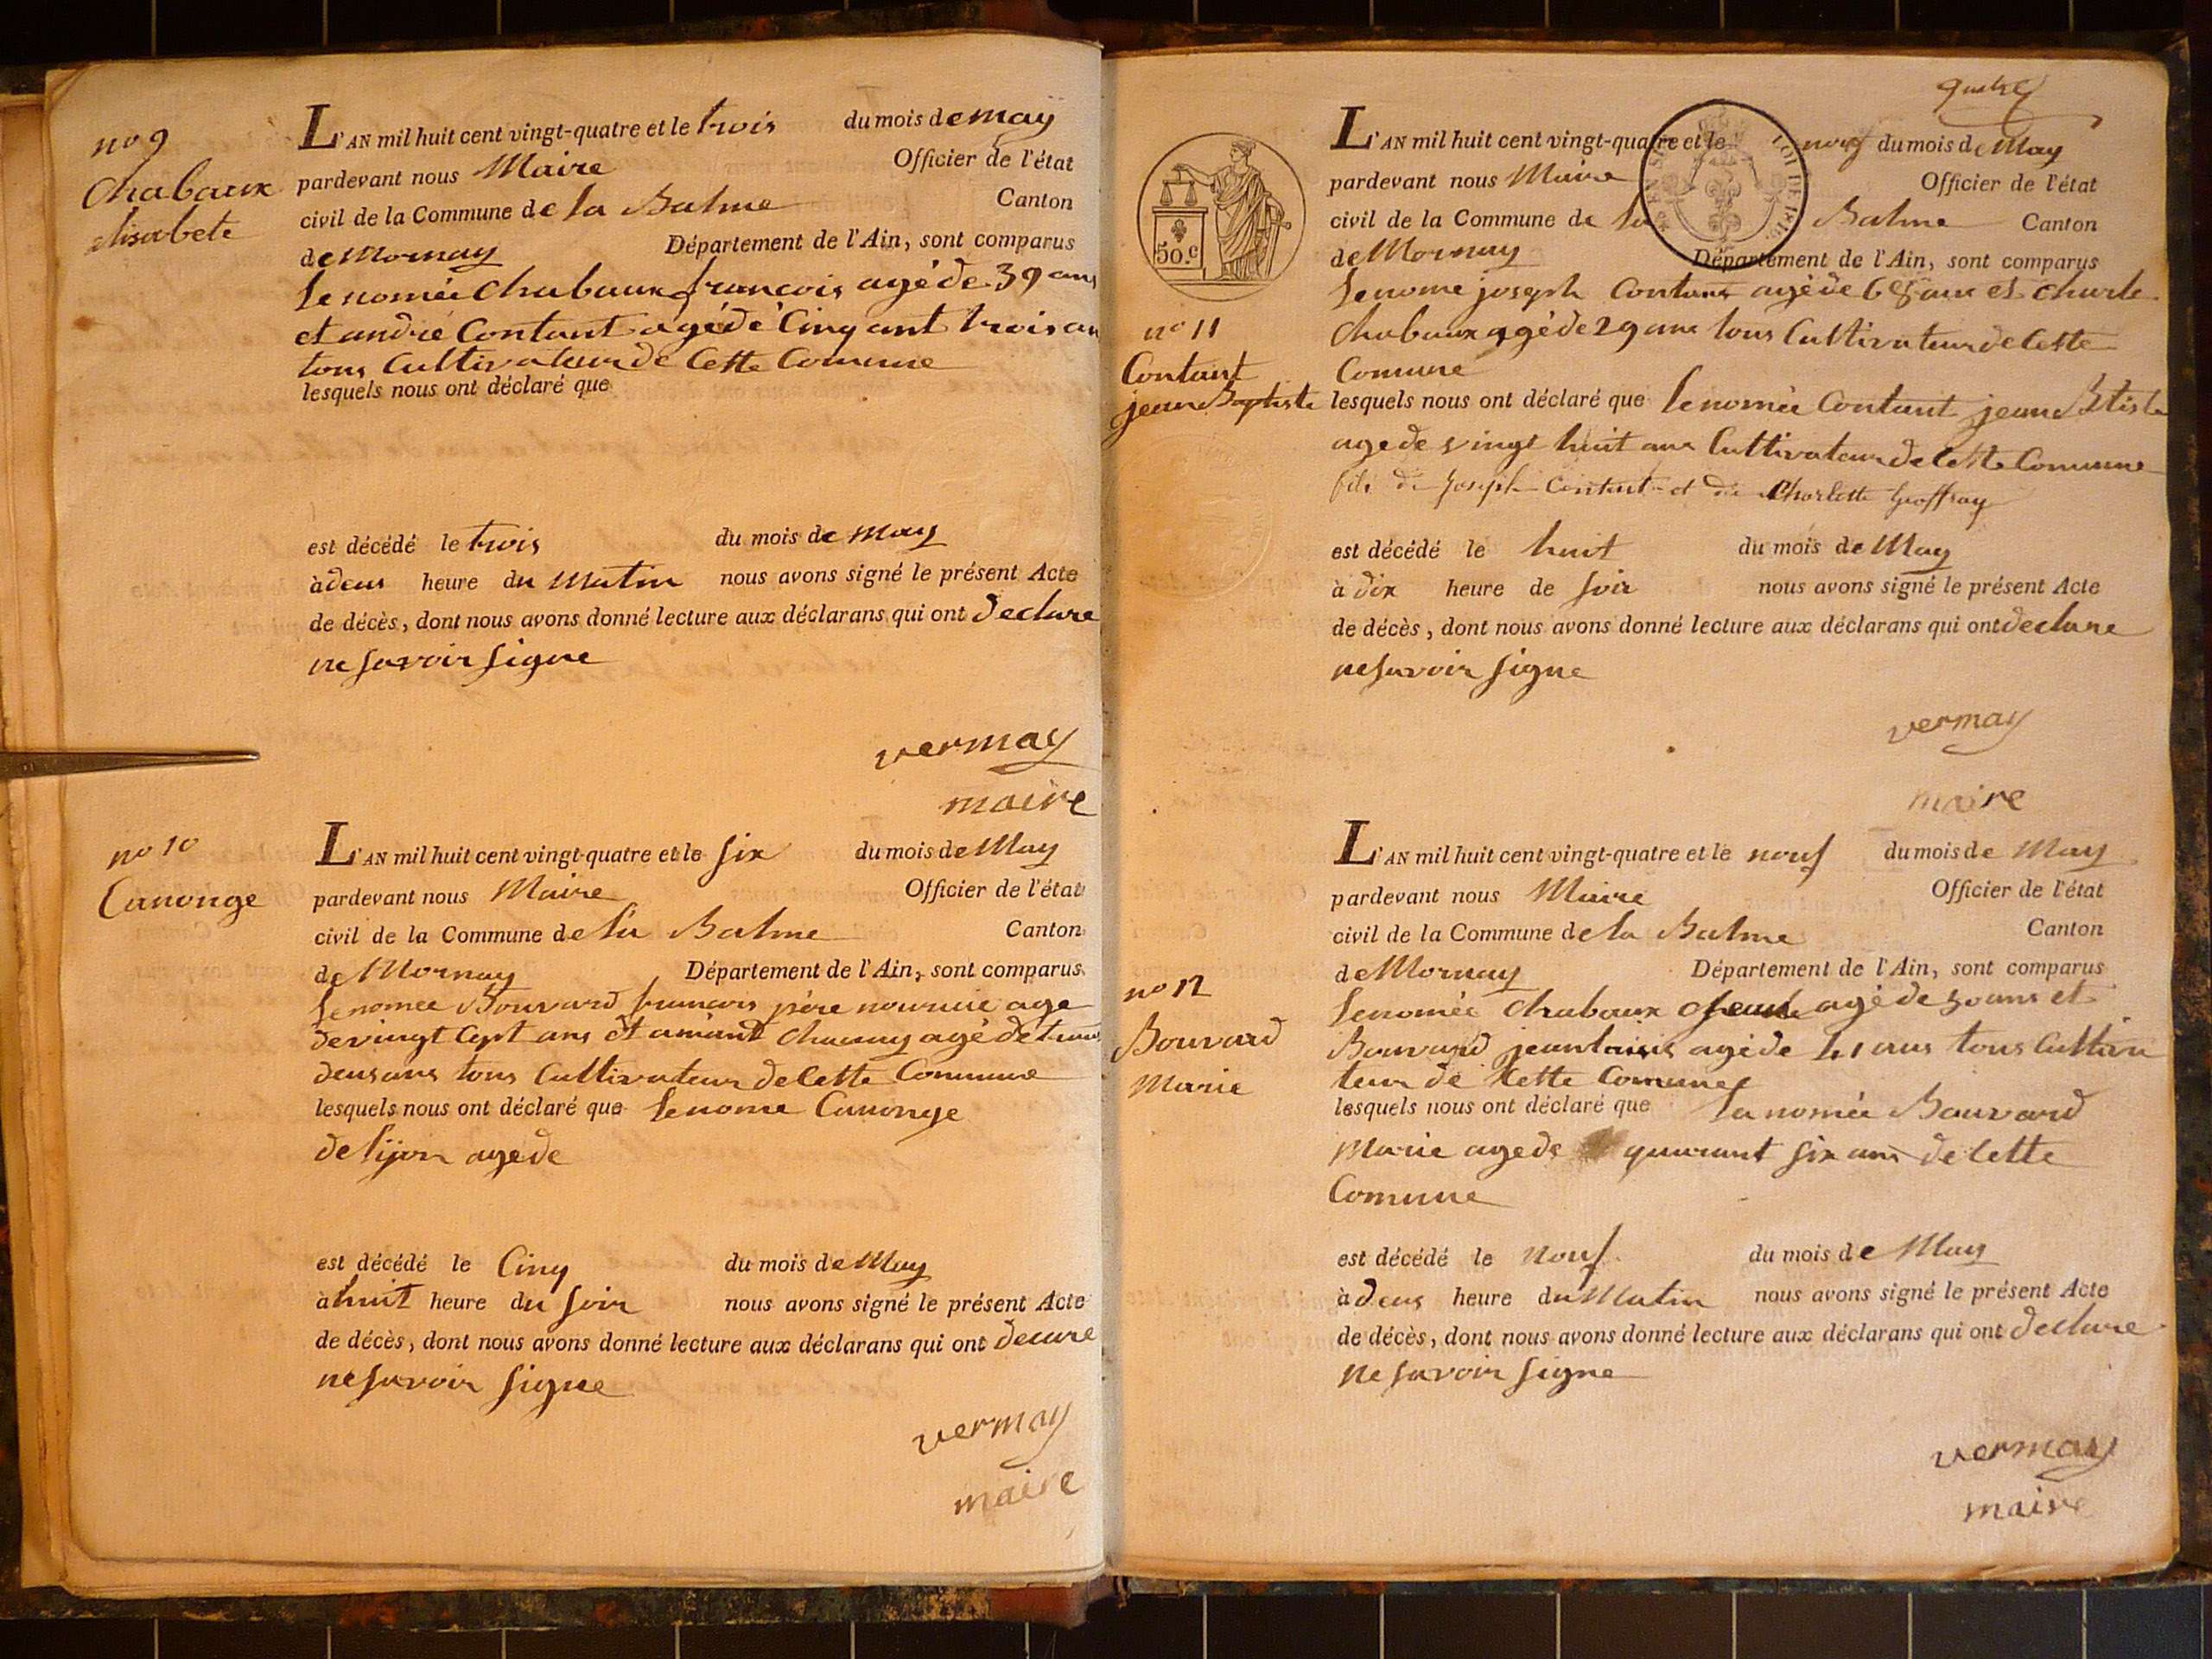 no 9
Chabaux
elisabete
L'AN mil huit cent vingt-quatre et le trois du mois de may
pardevant nous Maire Officier de l'état
civil de la Commune de la Balme Canton
de Mornay Département de l'Ain, sont comparus
le nomée Chabaux francois agé de 39 ans
et andré Contant agé de Cinq ant trois an
tous Cultivateur de Cette Comune
lesquels nous ont déclaré que
est décédé le trois du mois de may
à deus heure du Matin nous avons signé le présent Acte
de décès, dont nous avons donné lecture aux déclarans qui ont declare
ne savoir signe
vermay
maire
no 10
Canonge
L'AN mil huit cent vingt-quatre et le six du mois de May
pardevant nous Maire Officier de l'état
civil de la Commune de la Balme Canton
de Mornay Département de l'Ain, sont comparus
le nomee Bouvard francois père nourcie age
de vingt Cept ans et amant agé de
deus ans tous Cultivateur de Cette Commune
lesquels nous ont déclaré que le nome Canonge
de lijon age de
est décédé le Cinq du mois de May
à huit heure du soir nous avons signé le présent Acte
de décès, dont nous avons donné lecture aux déclarans qui ont decure
ne savoir signe
vermay
maire
quatre
50.c
LOI DE 1816
L'AN mil huit cent vingt-quatre et le nouf du mois de May
pardevant nous Maire Officier de l'état
civil de la Commune de la Balme Canton
de Mornay Département de l'Ain, sont comparus
le nome joseph Contant agé de ans et charle
Chabaux agé de 29 ans tous Cultivateur de Cette
Comune
no 11
Contant
jean Baptiste
lesquels nous ont déclaré que le nomée Contant jean Btiste
age de vingt huit ans Cultivateur de Cette Comune
fils de Joseph Contant et de Charlotte Geoffray
est décédé le huit du mois de May
à dix heure de soir nous avons signé le présent Acte
de décès, dont nous avons donné lecture aux déclarans qui ont declare
ne savoir signe
vermay
maire
L'AN mil huit cent vingt-quatre et le nouf du mois de May
pardevant nous Maire Officier de l'état
civil de la Commune de la Balme Canton
de Mornay Département de l'Ain, sont comparus
no 12
Bouvard
Marie
le nomée Chabaux agé de 50 ans et
Bouvard jean louis agé de 41 ans tous Cultiva
teur de Cette Comune
lesquels nous ont déclaré que la nomée Bouvard
Marie age de quarant six ans de Cette
Comune
est décédé le nouf du mois de May
à deus heure du Matin nous avons signé le présent Acte
de décès, dont nous avons donné lecture aux déclarans qui ont declare
ne savoir signe
vermay
maire